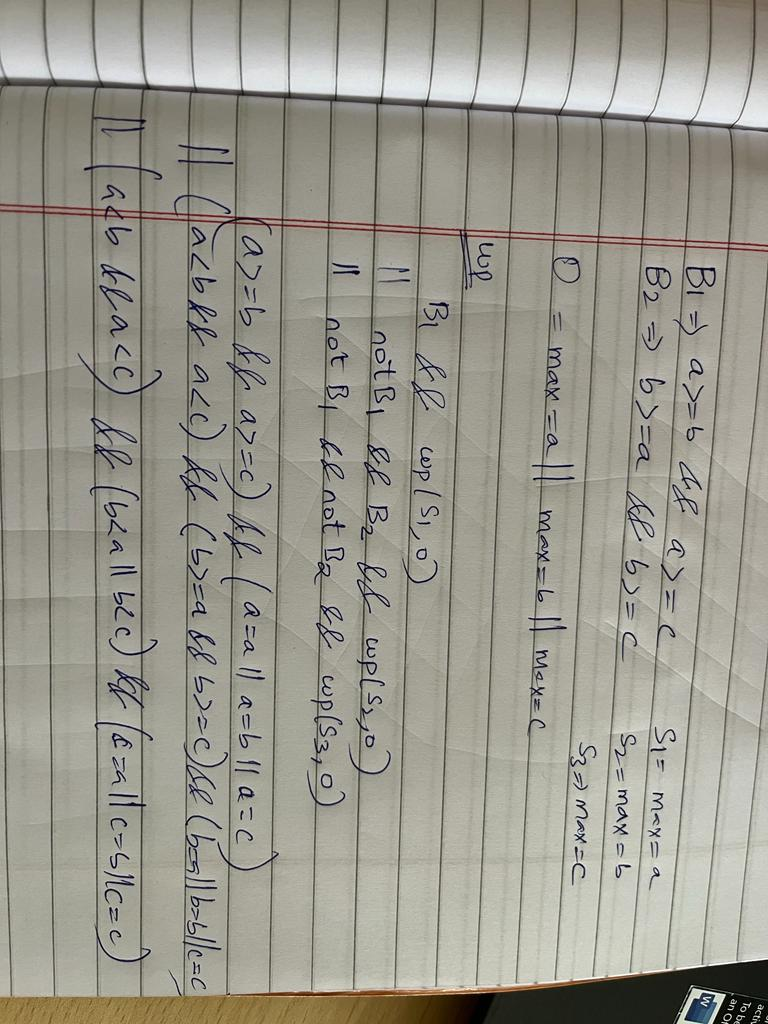 B1 => a>=b && a>=c
B2 => b>=a && b>=c
S1 = max=a
S2 = max=b
S3 => max=c
O = max=a || max=b || max=c
wp
B1 && wp(S1,O)
|| not B1 && B2 && wp(S2,O)
|| not B1 && not B2 && wp(S3,O)
(a>=b && a>=c) && (a=a || a=b || a=c)
|| (a<b && a<c) && (b>=a && b>=c) && (b=a || b=b || c=c
|| (a<b && a<c) && (b<a || b<c) && (c=a || c=b || c=c)
W